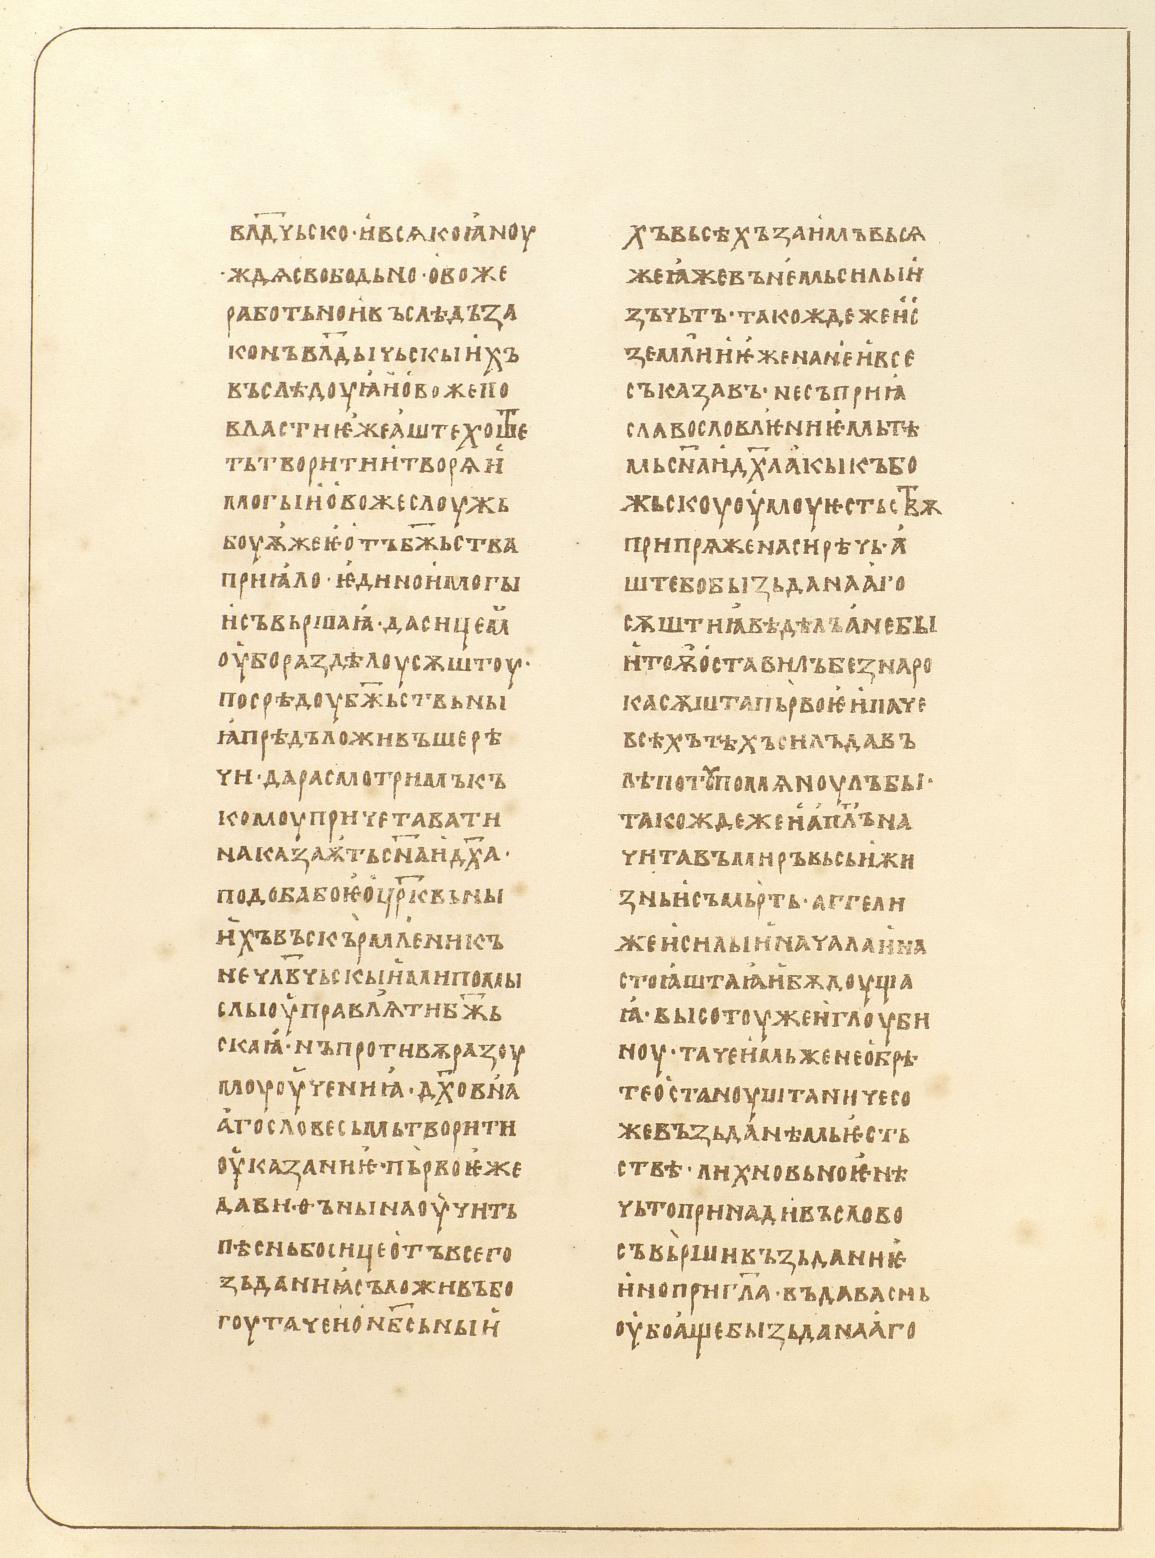 влд҃чьско·и҆всѧкоꙗ҆ноу
·ждѧсвободьно·о҆воже
работьнои҆въслѣдъза
конъвлд҃ычьскыи҆хъ
въслѣдоуꙗ҆и҆о҆вожепо
властиѥ҆жеа҆штехоще
тьтворитии҆творѧи҆
могыи҆о҆вожеслоужь
боуѭ҆жеѥ҆о҆тъбж҃ьства
приꙗ҆ло·ѥ҆динои҆могы
и҆съвьршаꙗ҆·дасицеа҆и҆
оу҆бораздѣлоусѫштоу·
посрѣдоубж҃ьствьны
ꙗ҆прѣдъложивъшерѣ
чи·дарасмотримъкъ
комоупричетавати
наказаѭ҆тьсн҃аи҆дх҃а·
подобабоѥ҆о҆цр҃квьны
и҆хъвъскъ҆рмл҄еникъ
нечлв҃чьскыи҆миг҃помы
слыоу҆правл҄ѧтибж҃ь
скаꙗ҆·нъпротивѫразоу
моуоу҆чениꙗ҆·дх҃овна
а҆гословесьмьтворити
оу҆казаниѥ҆·пь҆рвоѥ҆же
дави·ѳ·ънынаоу҆чить
пѣсньбосицео҆тъвсего
зьданиꙗ҆съложивъбо
гоутачеи҆о҆нб҃сьныи҆
хъвьсѣхъзаи҆мъвьсꙗ
жеꙗ҆жевъне҆мьсилыи҆
зъчьтъ·такождежеи҆с҆
земл҄ии҆ѥ҆женане҆и҆все
съказавъ·несъприꙗ҆
славословл҄ѥниѥ҆мьтѣ
мьсн҃аи҆дх҃ла҆кыкъбо
жьскоуоу҆моуѥстьст҃вѫ
припрѧженасирѣчь·а҆
штебобызьданаа҆го
сѫштиꙗ҆вѣдѣлъа҆небы
и҆тоѭ҆о҆ставилъбезнаро
касѫштапь҆рвоѥ҆и҆паче
всѣхътѣхъсилъдавъ
лѣпотꙋ҆помѧноулъбы·
такождежеи҆а҆пл҃ъна
читавъмиръвьсьи҆жи
зньи҆съмьр҆ть·аггели
жеи҆силыи҆началаи҆на
стоꙗштаꙗ҆и҆бѫдоущиа
ꙗ҆·высотоужеи҆глоуби
ноу·тачеи҆мьженео҆брѣ
тео҆станоуштаничесо
жевъзьда҆нѣмьѥ҆сть
ствѣ·лихновьноѥ҆нѣ
чьтопринадивъслово
съвь҆ршивъзьданиѥ҆
и҆нопригл҃а·въдавасиь
оу҆боа҆щебызьданаа҆го